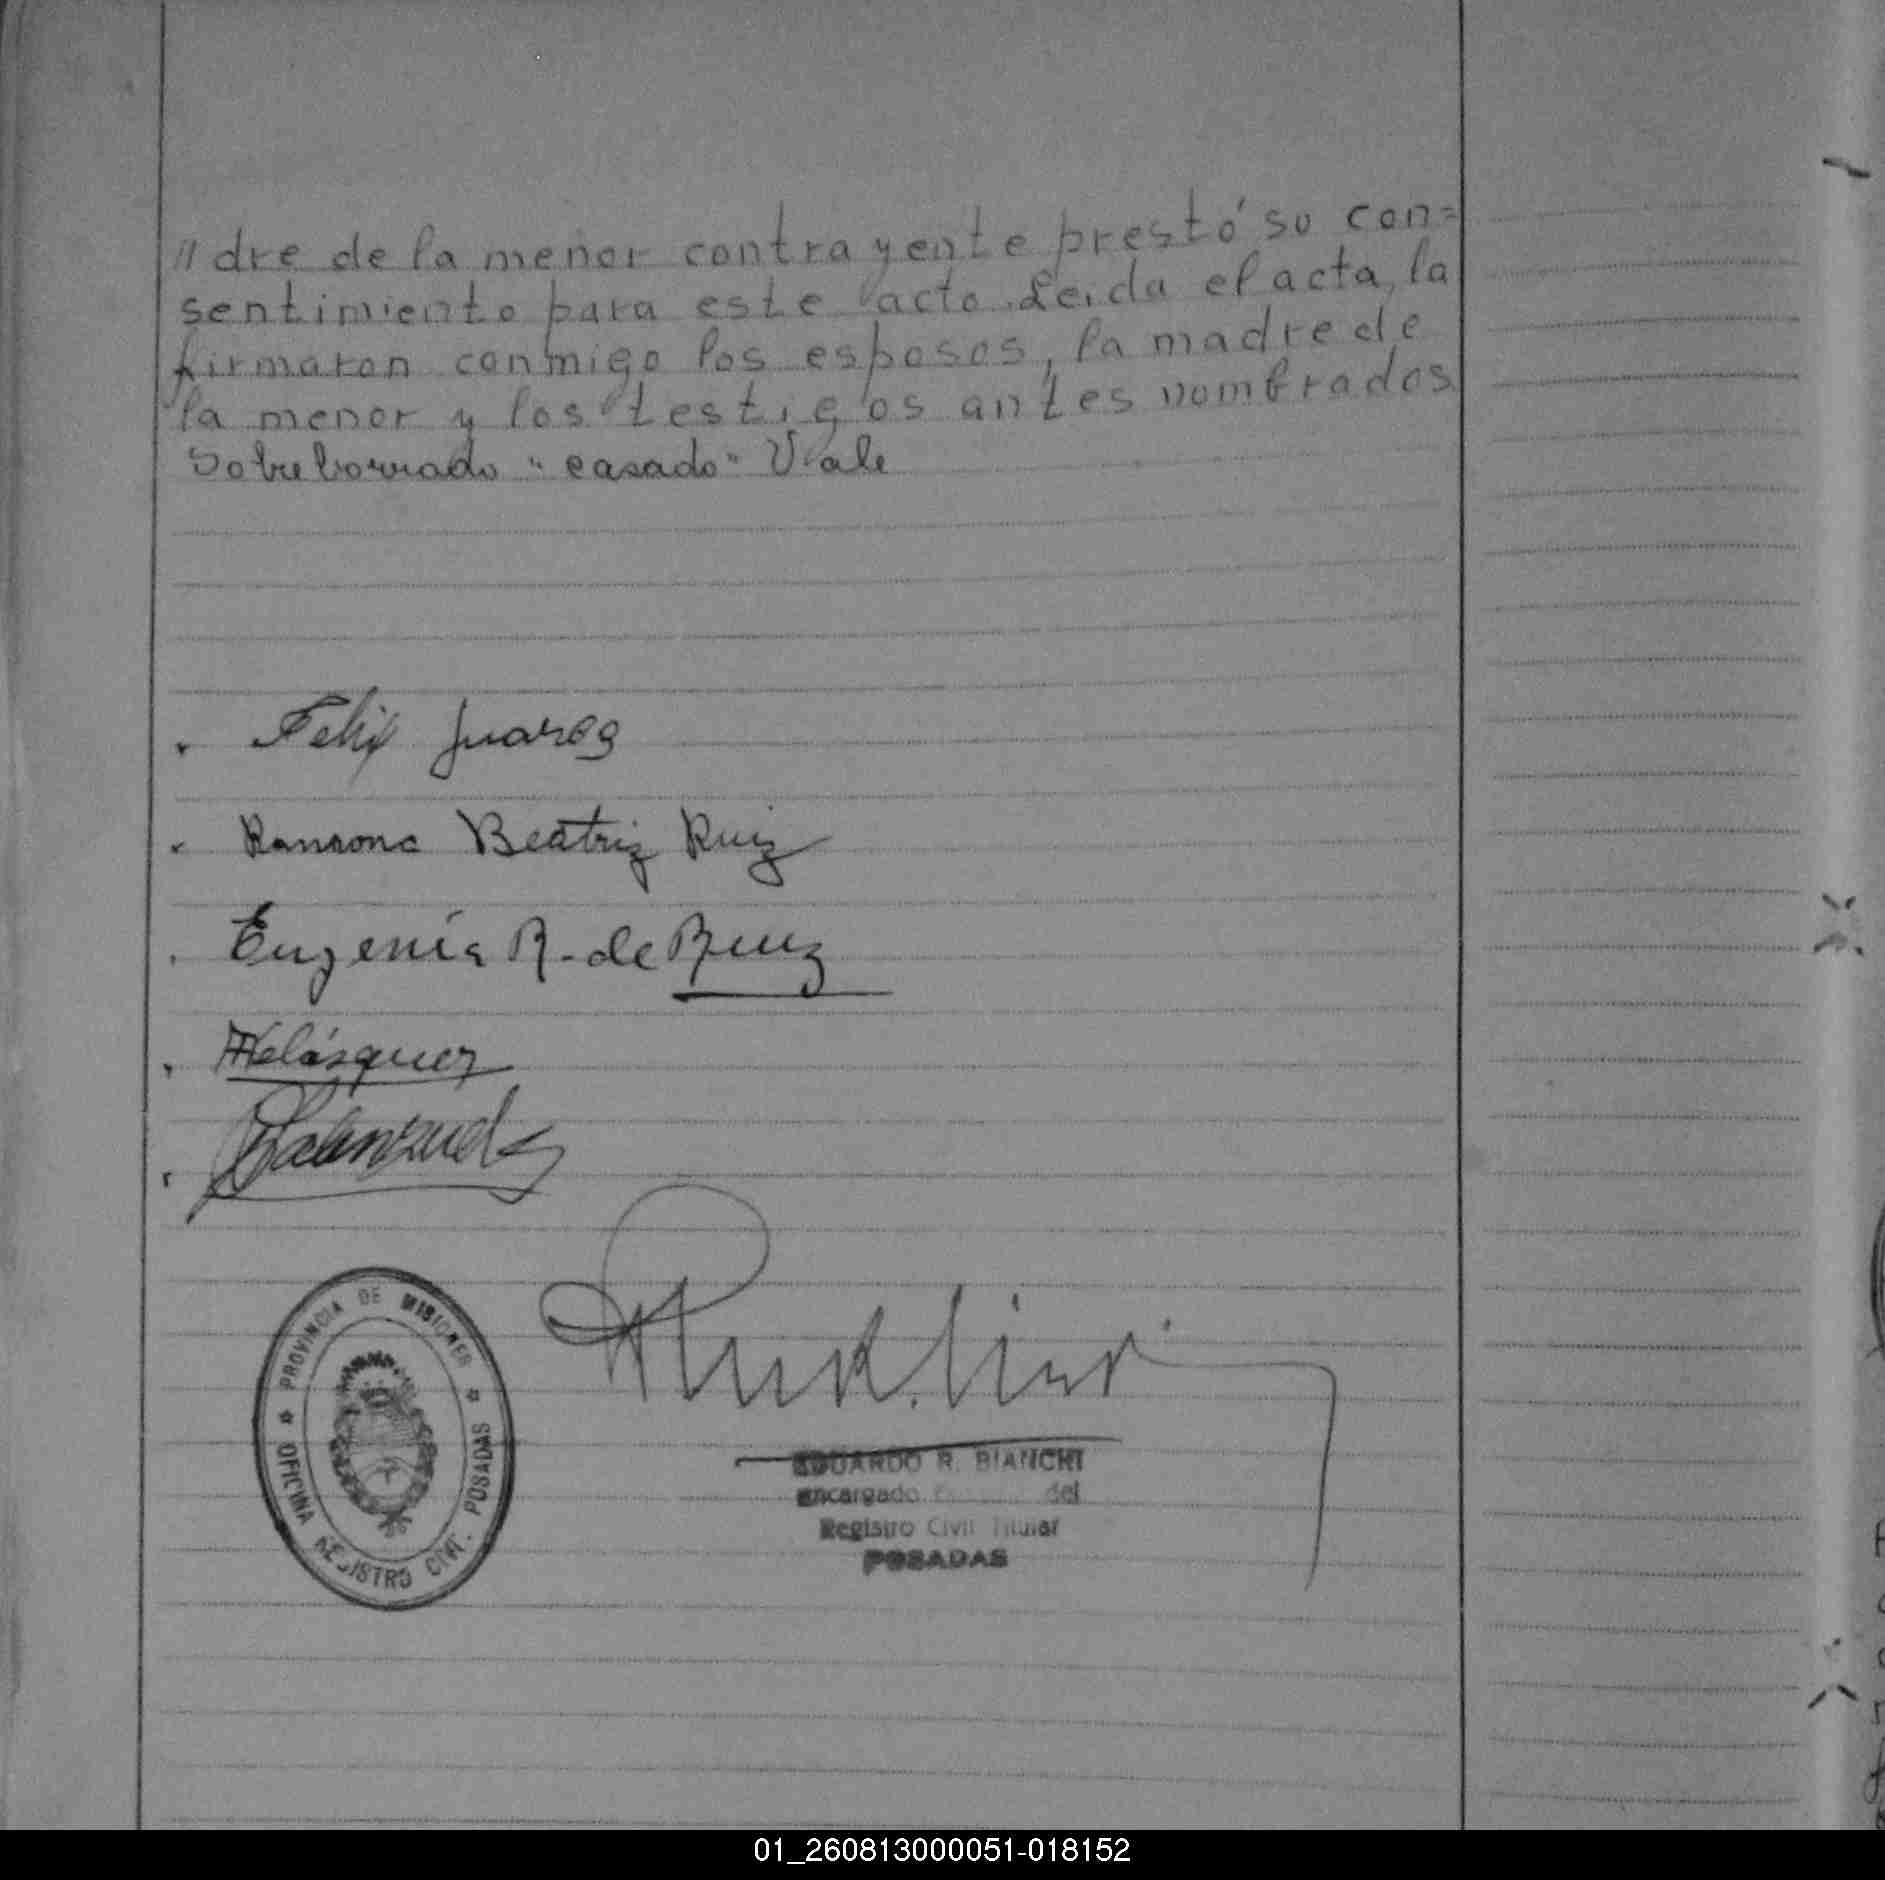 //dre de la menor contrayente prestó su con=
sentimiento para este acto. Leida el acta, la
firmaron conmigo los esposos, la madre de
la menor y los testigos antes nombrados
Sobreborrado "casado" Vale
Felix Juarez
Ramona Beatriz Ruiz
Eugenia R. de Ruiz
Velásquez
PROVINCIA DE MISIONES
OFICINA REGISTRO CIVIL POSADAS
EDUARDO R. BIANCHI
Encargado del
Registro Civil Titular
POSADAS
01_260813000051-018152